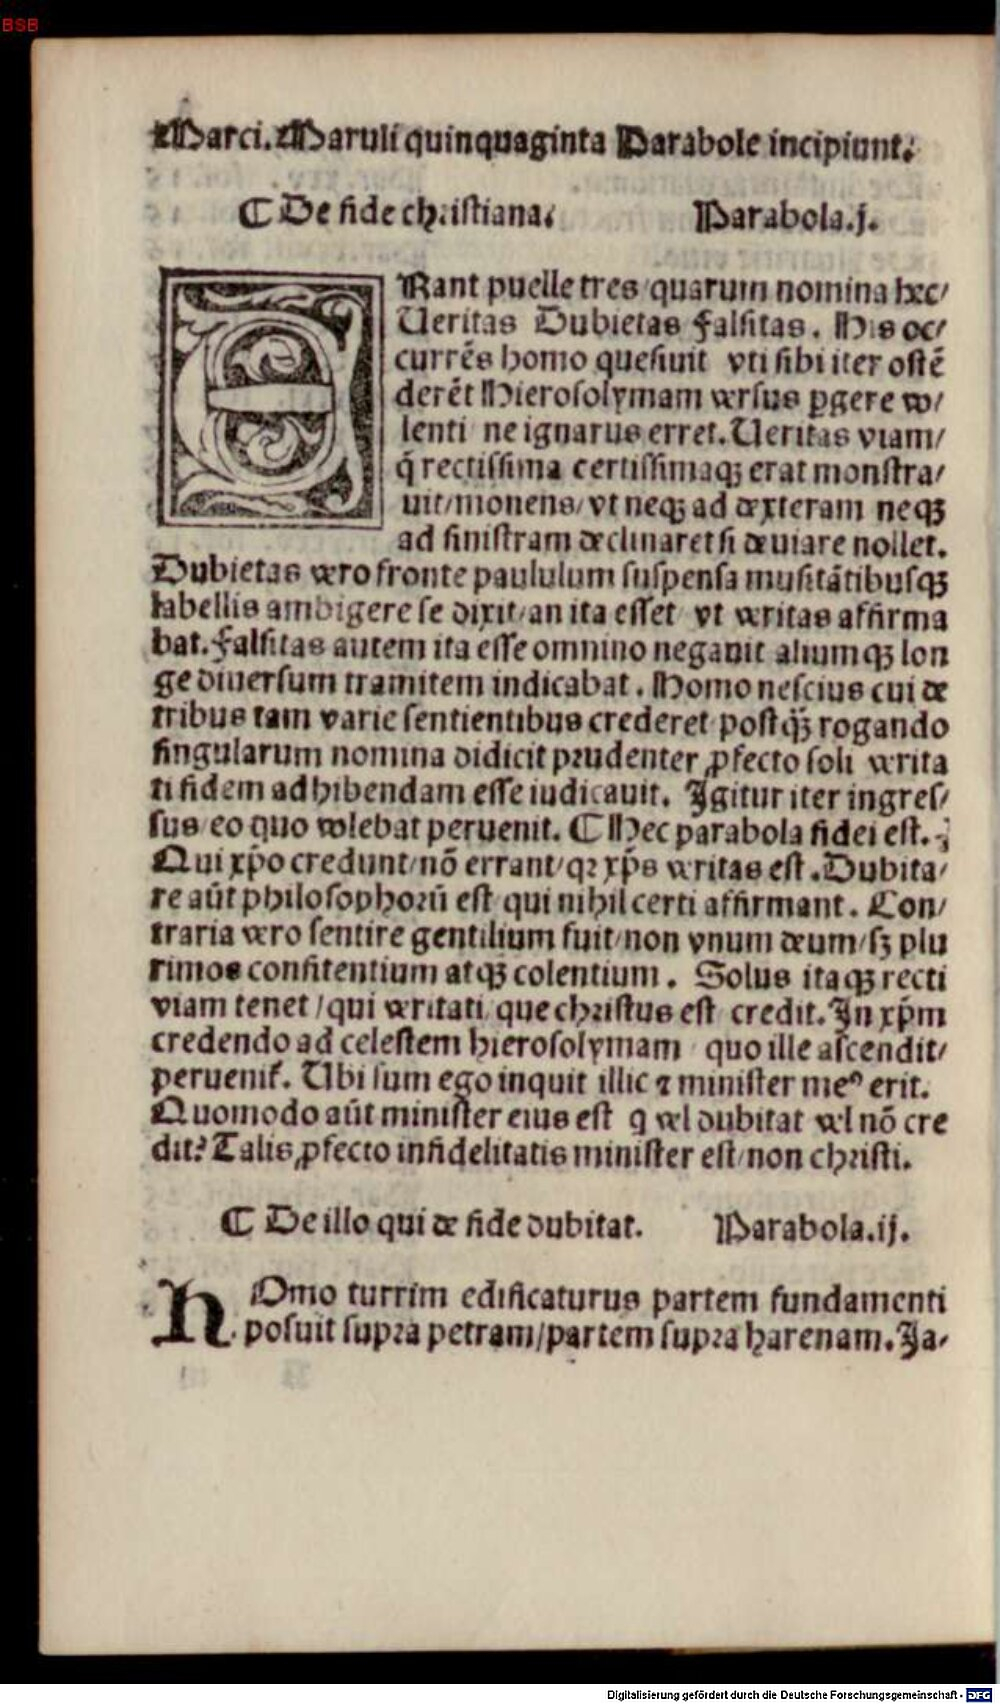 BSB
Marci. Maruli quinquaginta Parabole incipiunt.
¶ De fide christiana. Parabola.j.
ERant puelle tres/quarum nomina hec/
Ueritas Dubietas Falsitas. His oc/
currẽs homo quesiuit vti sibi iter ostẽ
derẽt Hierosolymam versus ꝑgere vo/
lenti ne ignarus erret. Ueritas viam/
q̃ rectissima certissimaqꝫ erat monstra/
uit/monens/vt neqꝫ ad dexteram neqꝫ
ad sinistram declinaret si deuiare nollet.
Dubietas vero fronte paululum suspensa musitãtibusqꝫ
labellis ambigere se dixit/an ita esset vt veritas affirma
bat. Falsitas autem ita esse omnino negauit aliumqꝫ lon
ge diuersum tramitem indicabat. Homo nescius cui de
tribus tam varie sentientibus crederet postqꝫ̃ rogando
singularum nomina didicit prudenter ꝓfecto soli verita
ti fidem adhibendam esse iudicauit. Igitur iter ingres/
sus/eo quo volebat peruenit. ¶ Hec parabola fidei est.
Qui xp̃o credunt/nõ errant/qꝛ xp̃s veritas est. Dubita/
re aũt philosophorũ est qui nihil certi affirmant. Con/
traria vero sentire gentilium fuit/non vnum deum/sꝫ plu
rimos confitentium atqꝫ colentium. Solus itaqꝫ recti
viam tenet/qui veritati que christus est credit. In xp̃m
credendo ad celestem hierosolymam quo ille ascendit/
peruenit̃. Ubi sum ego inquit illic ⁊ minister meꝰ erit.
Quomodo aũt minister eius est q vel dubitat vel nõ cre
dit? Talis ꝓfecto infidelitatis minister est/non christi.
¶ De illo qui de fide dubitat. Parabola.ij.
HOmo turrim edificaturus partem fundamenti
posuit supra petram/partem supra harenam. Ja/
Digitalisierung gefördert durch die Deutsche Forschungsgemeinschaft - DFG